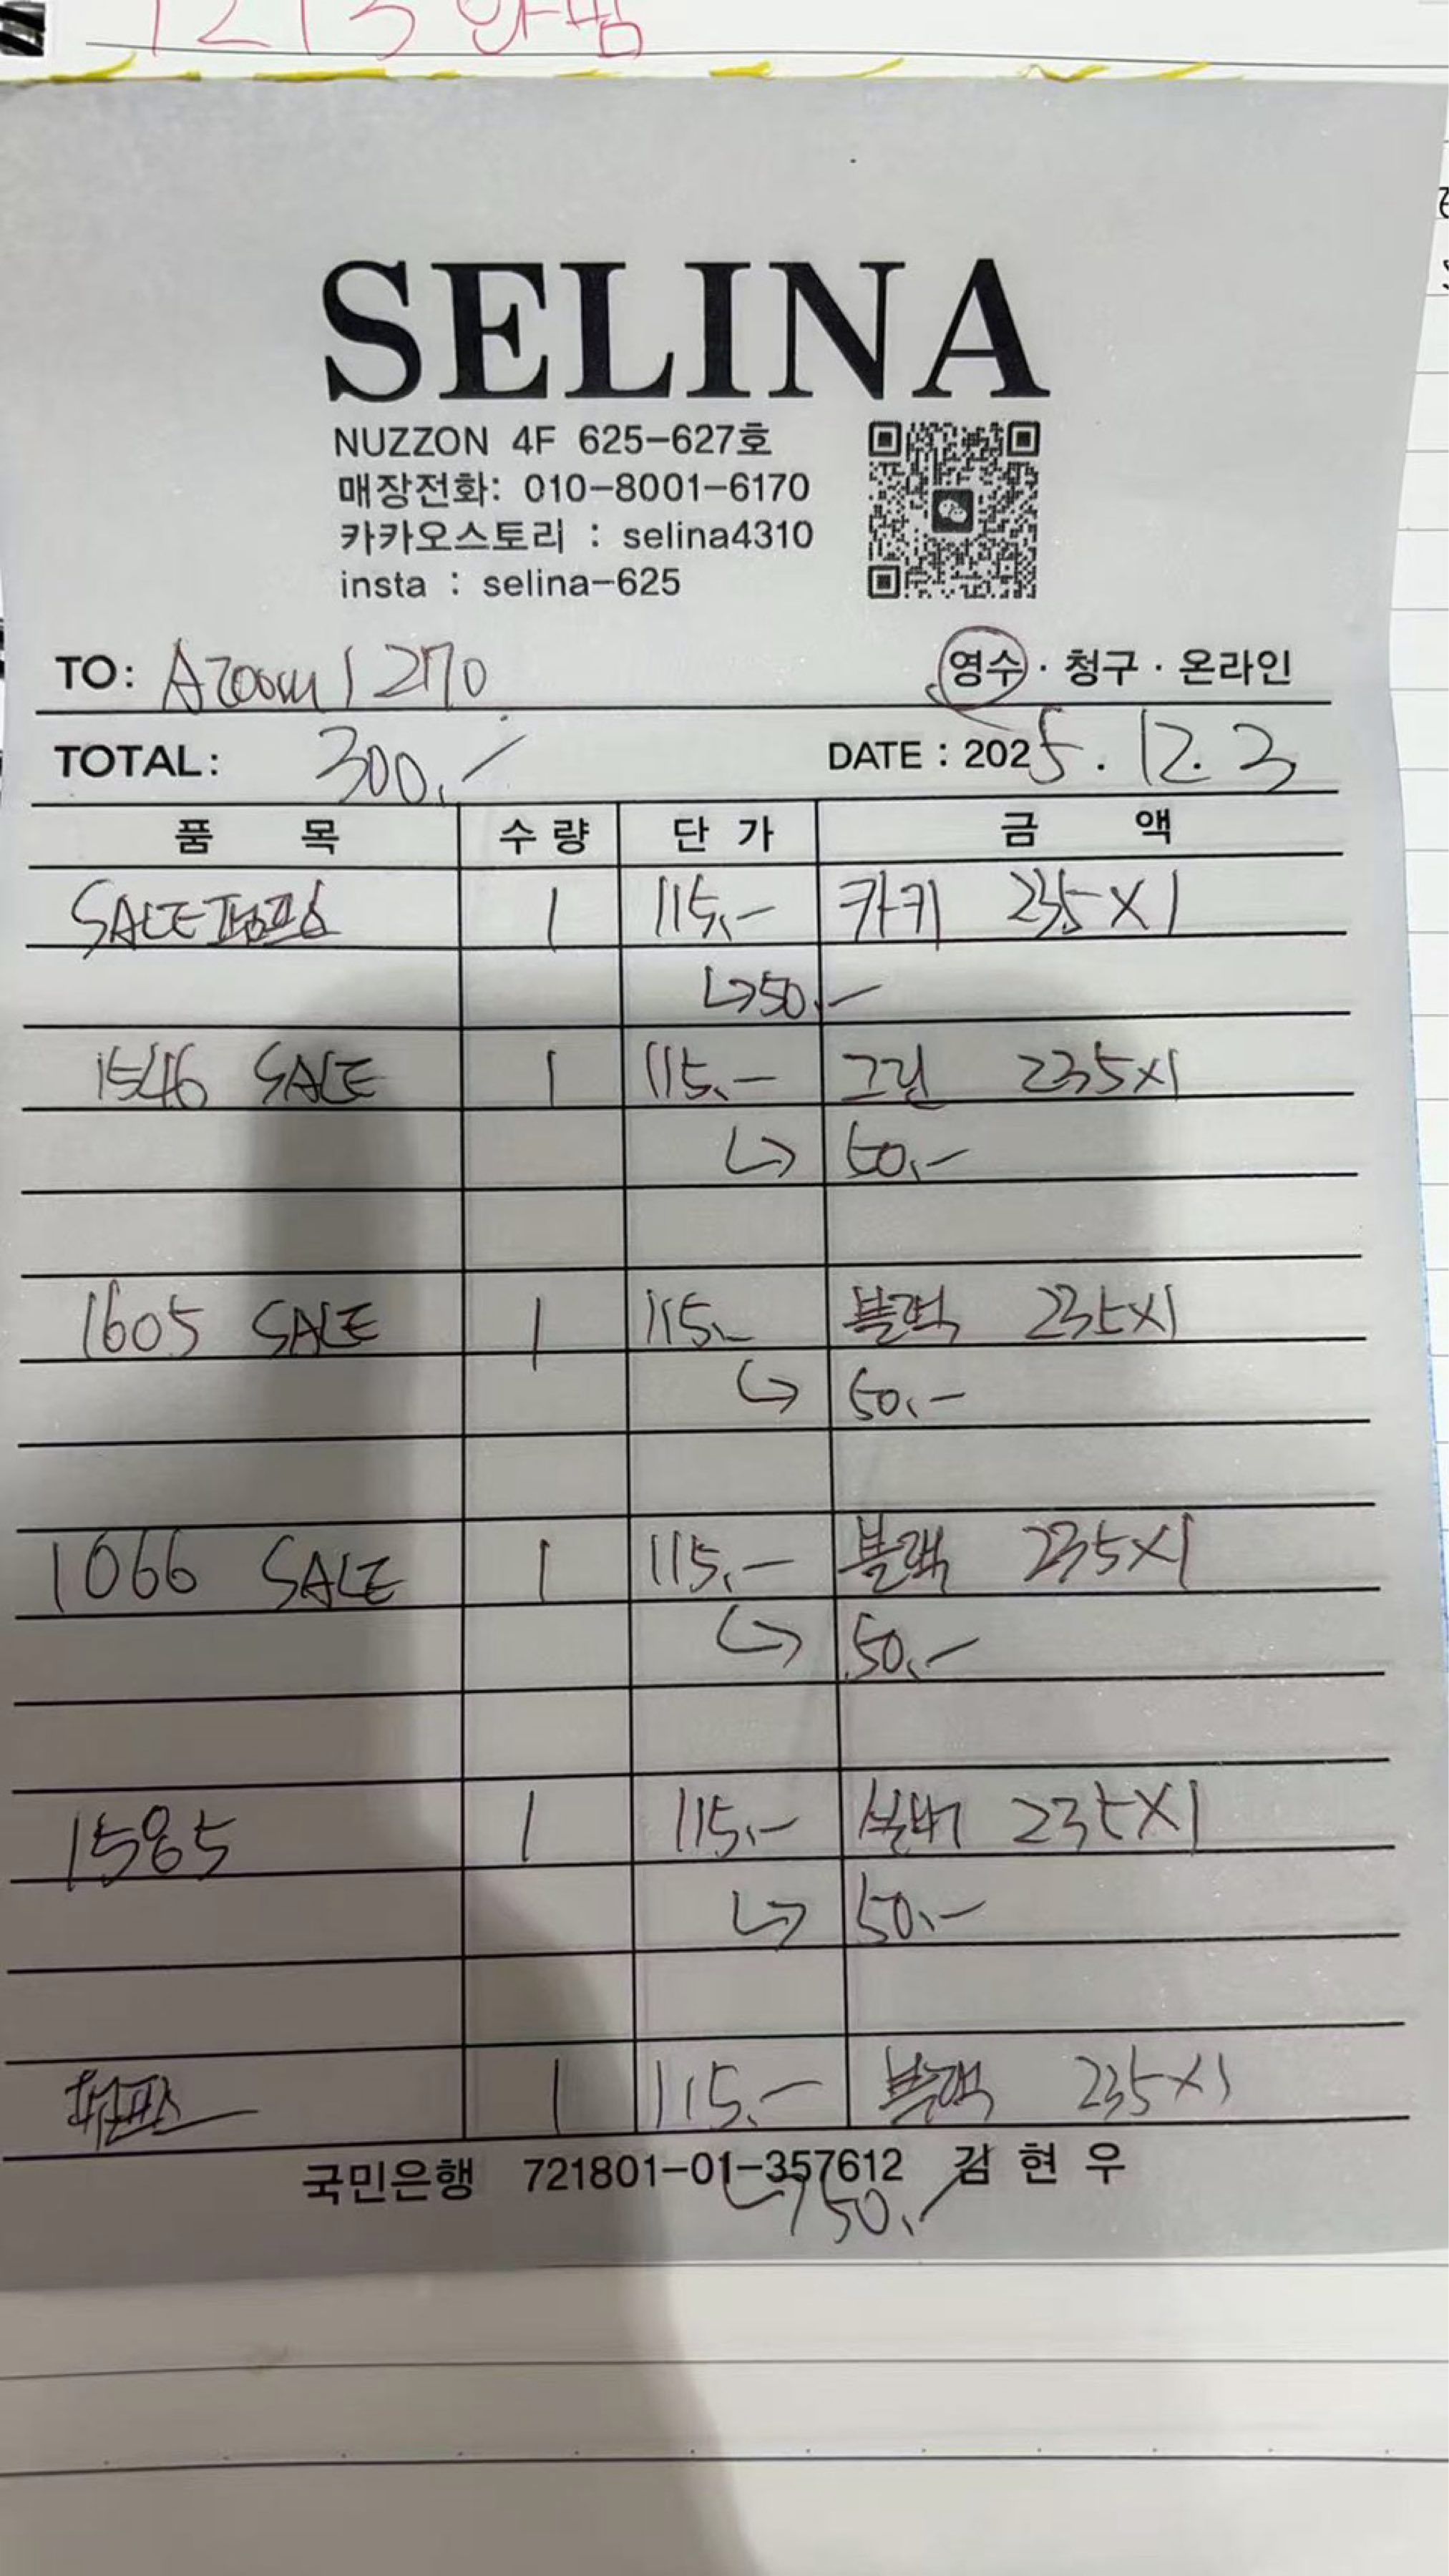 SELINA
NUZZON 4F 625-627호
매장전화: 010-8001-6170
카카오스토리 : selina4310
insta : selina-625
TO: Azoom 1270
영수 · 청구 · 온라인
TOTAL: 300,-
DATE : 2025. 12. 3
품 목 수 량 단 가 금 액
SALE 펌프스 1 115,- 카키 235X1
↳50,-
1546 SALE 1 115,- 그린 235X1
↳ 50,-
1605 SALE 1 115,- 블랙 235X1
↳ 50,-
1066 SALE 1 115,- 블랙 235X1
↳ 50,-
1585 1 115,- 실버 235X1
↳ 50,-
1 115,- 블랙 235X1
국민은행 721801-01-357612 김 현 우
↳50,-